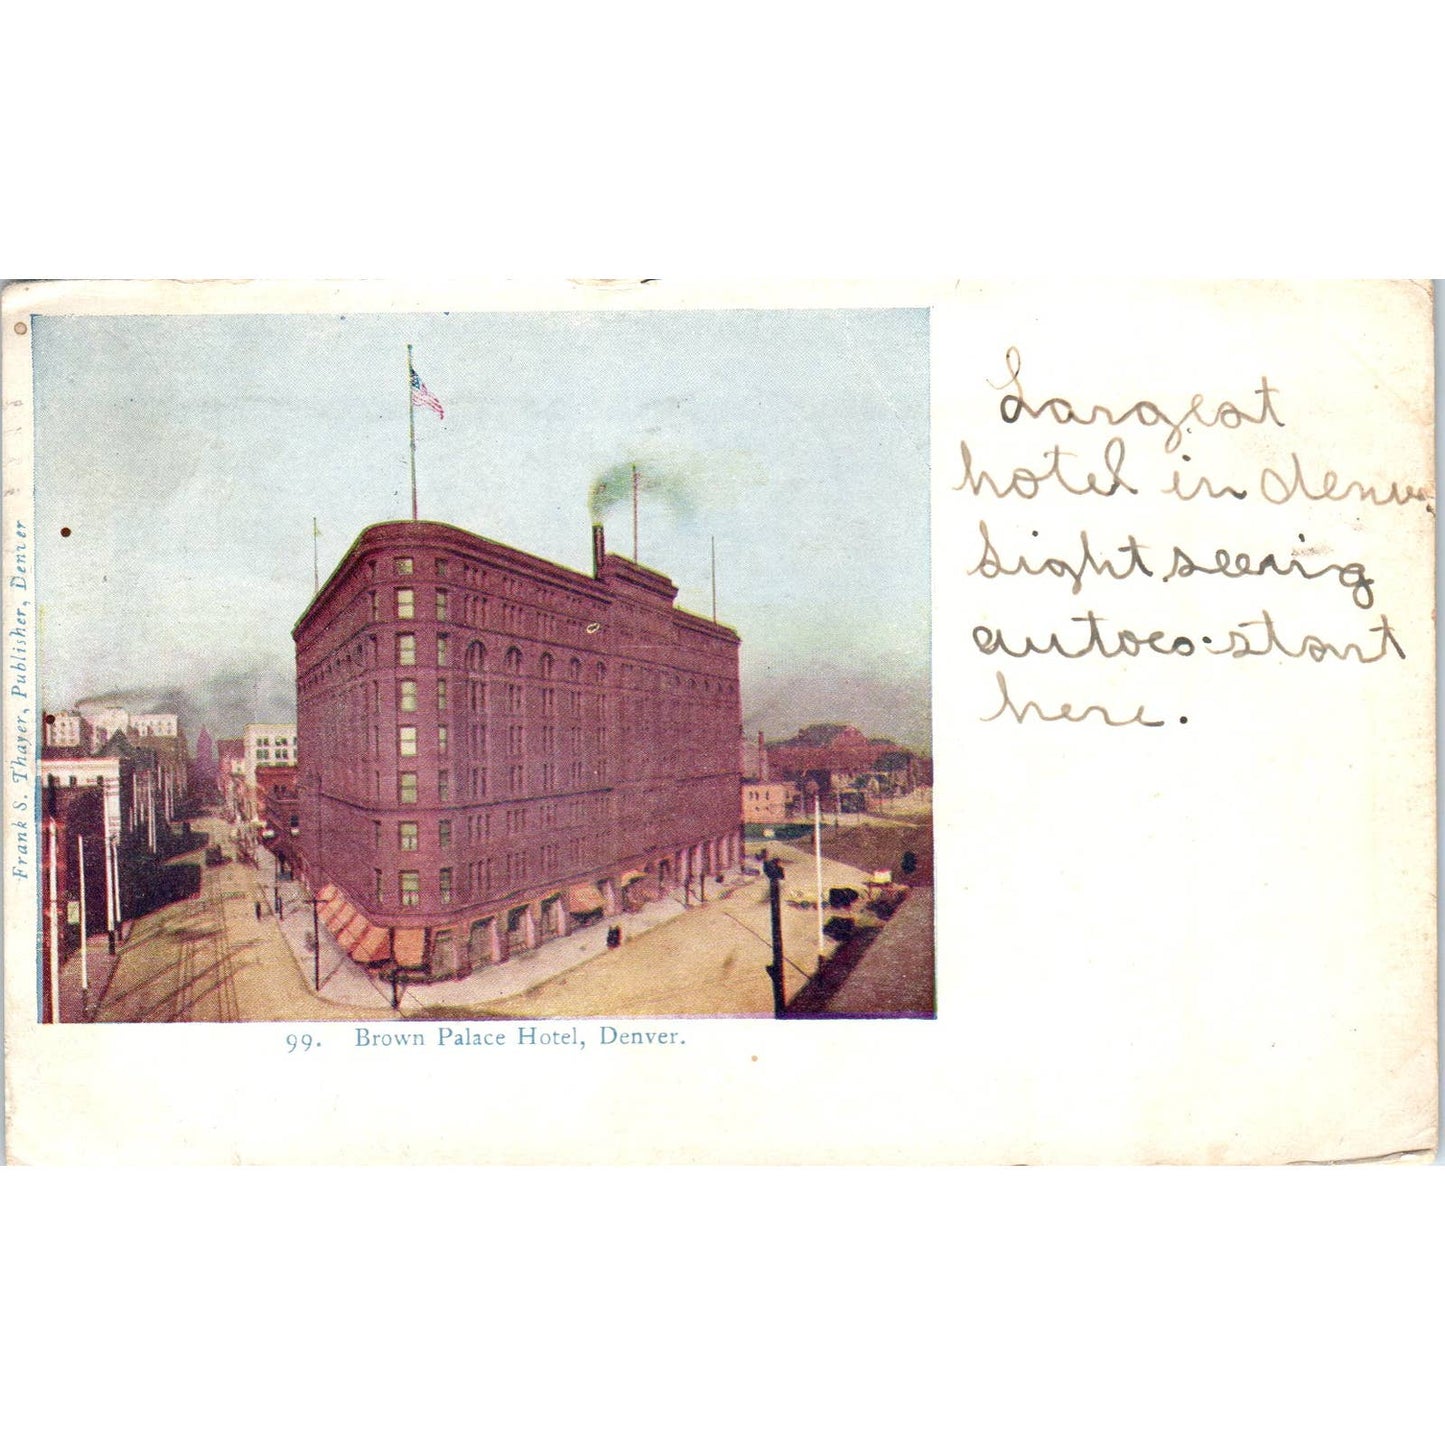 Largest
hotel in denver
Sight seeing
autoco. start
here.
Frank S. Thayer, Publisher, Denver
99. Brown Palace Hotel, Denver.